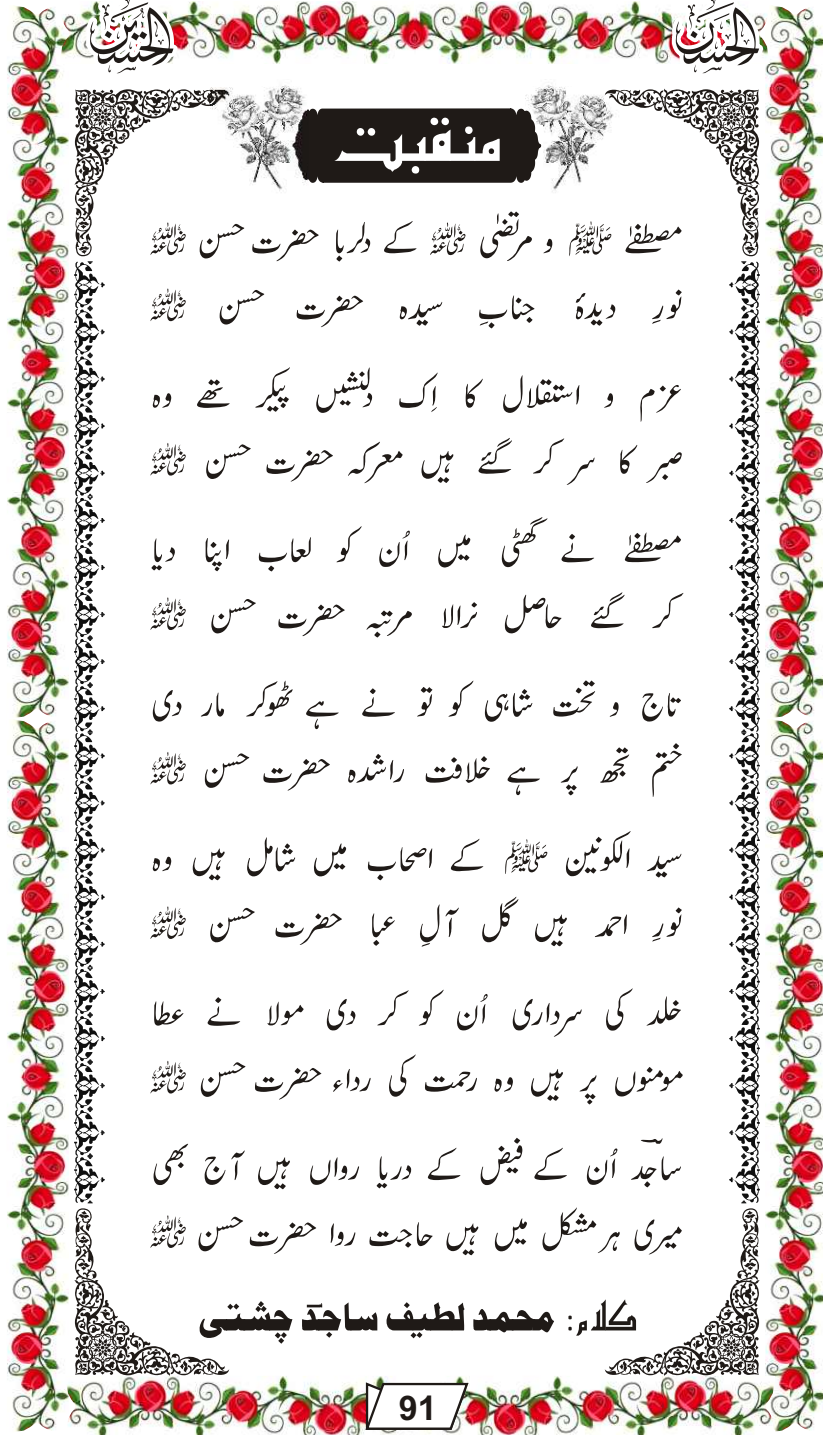 الحسن الحسن
منقبت
مصطفےٰ ﷺ و مرتضٰی رضی اللہ عنہ کے دلربا حضرت حسن رضی اللہ عنہ
نورِ دیدۂ جنابِ سیدہ حضرت حسن رضی اللہ عنہ
عزم و استقلال کا اِک دلنشیں پیکر تھے وہ
صبر کا سر کر گئے ہیں معرکہ حضرت حسن رضی اللہ عنہ
مصطفےٰ نے گھٹی میں اُن کو لعاب اپنا دیا
کر گئے حاصل نرالا مرتبہ حضرت حسن رضی اللہ عنہ
تاج و تخت شاہی کو تو نے ہے ٹھوکر مار دی
ختم تجھ پر ہے خلافت راشدہ حضرت حسن رضی اللہ عنہ
سید الکونین ﷺ کے اصحاب میں شامل ہیں وہ
نورِ احمد ہیں گل آلِ عبا حضرت حسن رضی اللہ عنہ
خلد کی سرداری اُن کو کر دی مولا نے عطا
مومنوں پر ہیں وہ رحمت کی رداء حضرت حسن رضی اللہ عنہ
ساجدؔ اُن کے فیض کے دریا رواں ہیں آج بھی
میری ہر مشکل میں ہیں حاجت روا حضرت حسن رضی اللہ عنہ
کلام: محمد لطیف ساجدؔ چشتی
91